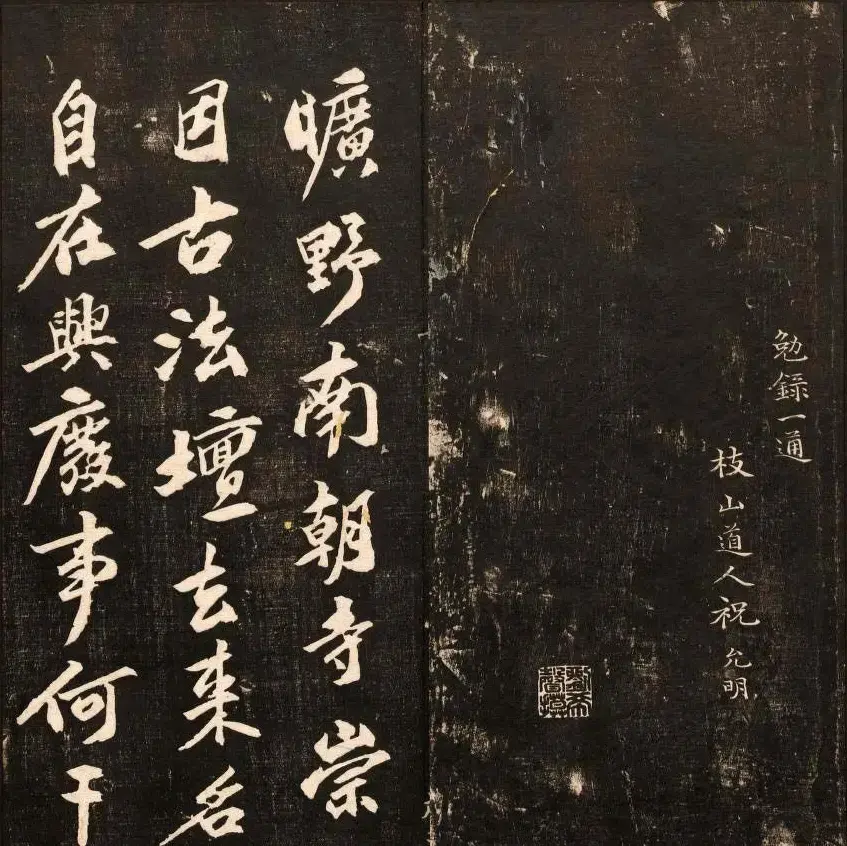 勉錄一通
枝山道人祝允明
曠野南朝寺崇
因古法壇去來名
自在興廢事何干